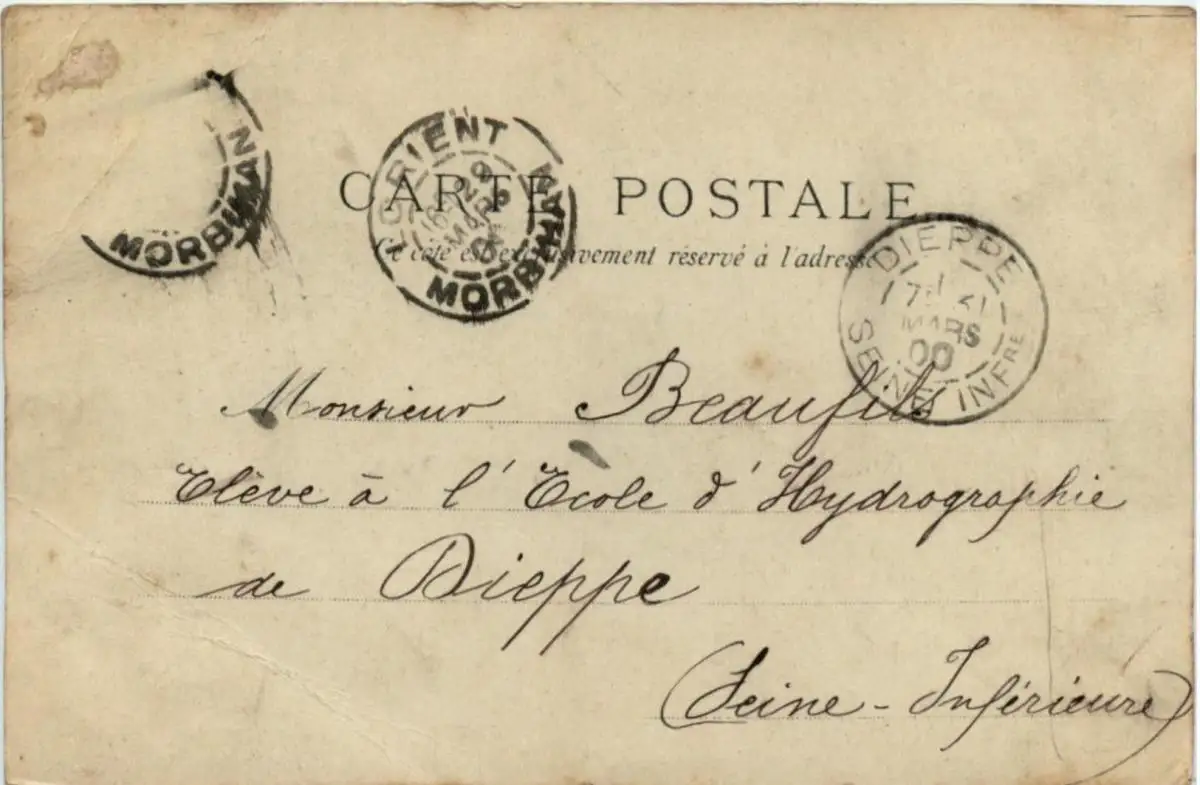 MORBIHAN
LORIENT
29
MARS
MORBIHAN
CARTE POSTALE
Ce côté est exclusivement réservé à l'adresse
DIEPPE
MARS
00
SEINE INFRE
Monsieur Beaufils
Elève à l'Ecole d'Hydrographie
de Dieppe
(Seine-Inférieure)